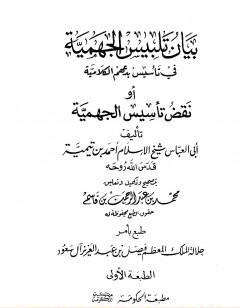 بيان تلبيس الجهمية
في تأسيس بدعهم الكلامية
أو
نقض تأسيس الجهمية
تأليف
أبي العباس شيخ الإسلام أحمد بن تيمية
قدس الله روحه
بتصحيح وتكميل وتعليق
محمد بن عبد الرحمن بن قاسم
حقوق الطبع محفوظة له
طبع بأمر
جلالة الملك المعظم فيصل بن عبد العزيز آل سعود
الطبعة الأولى
مطبعة الحكومة